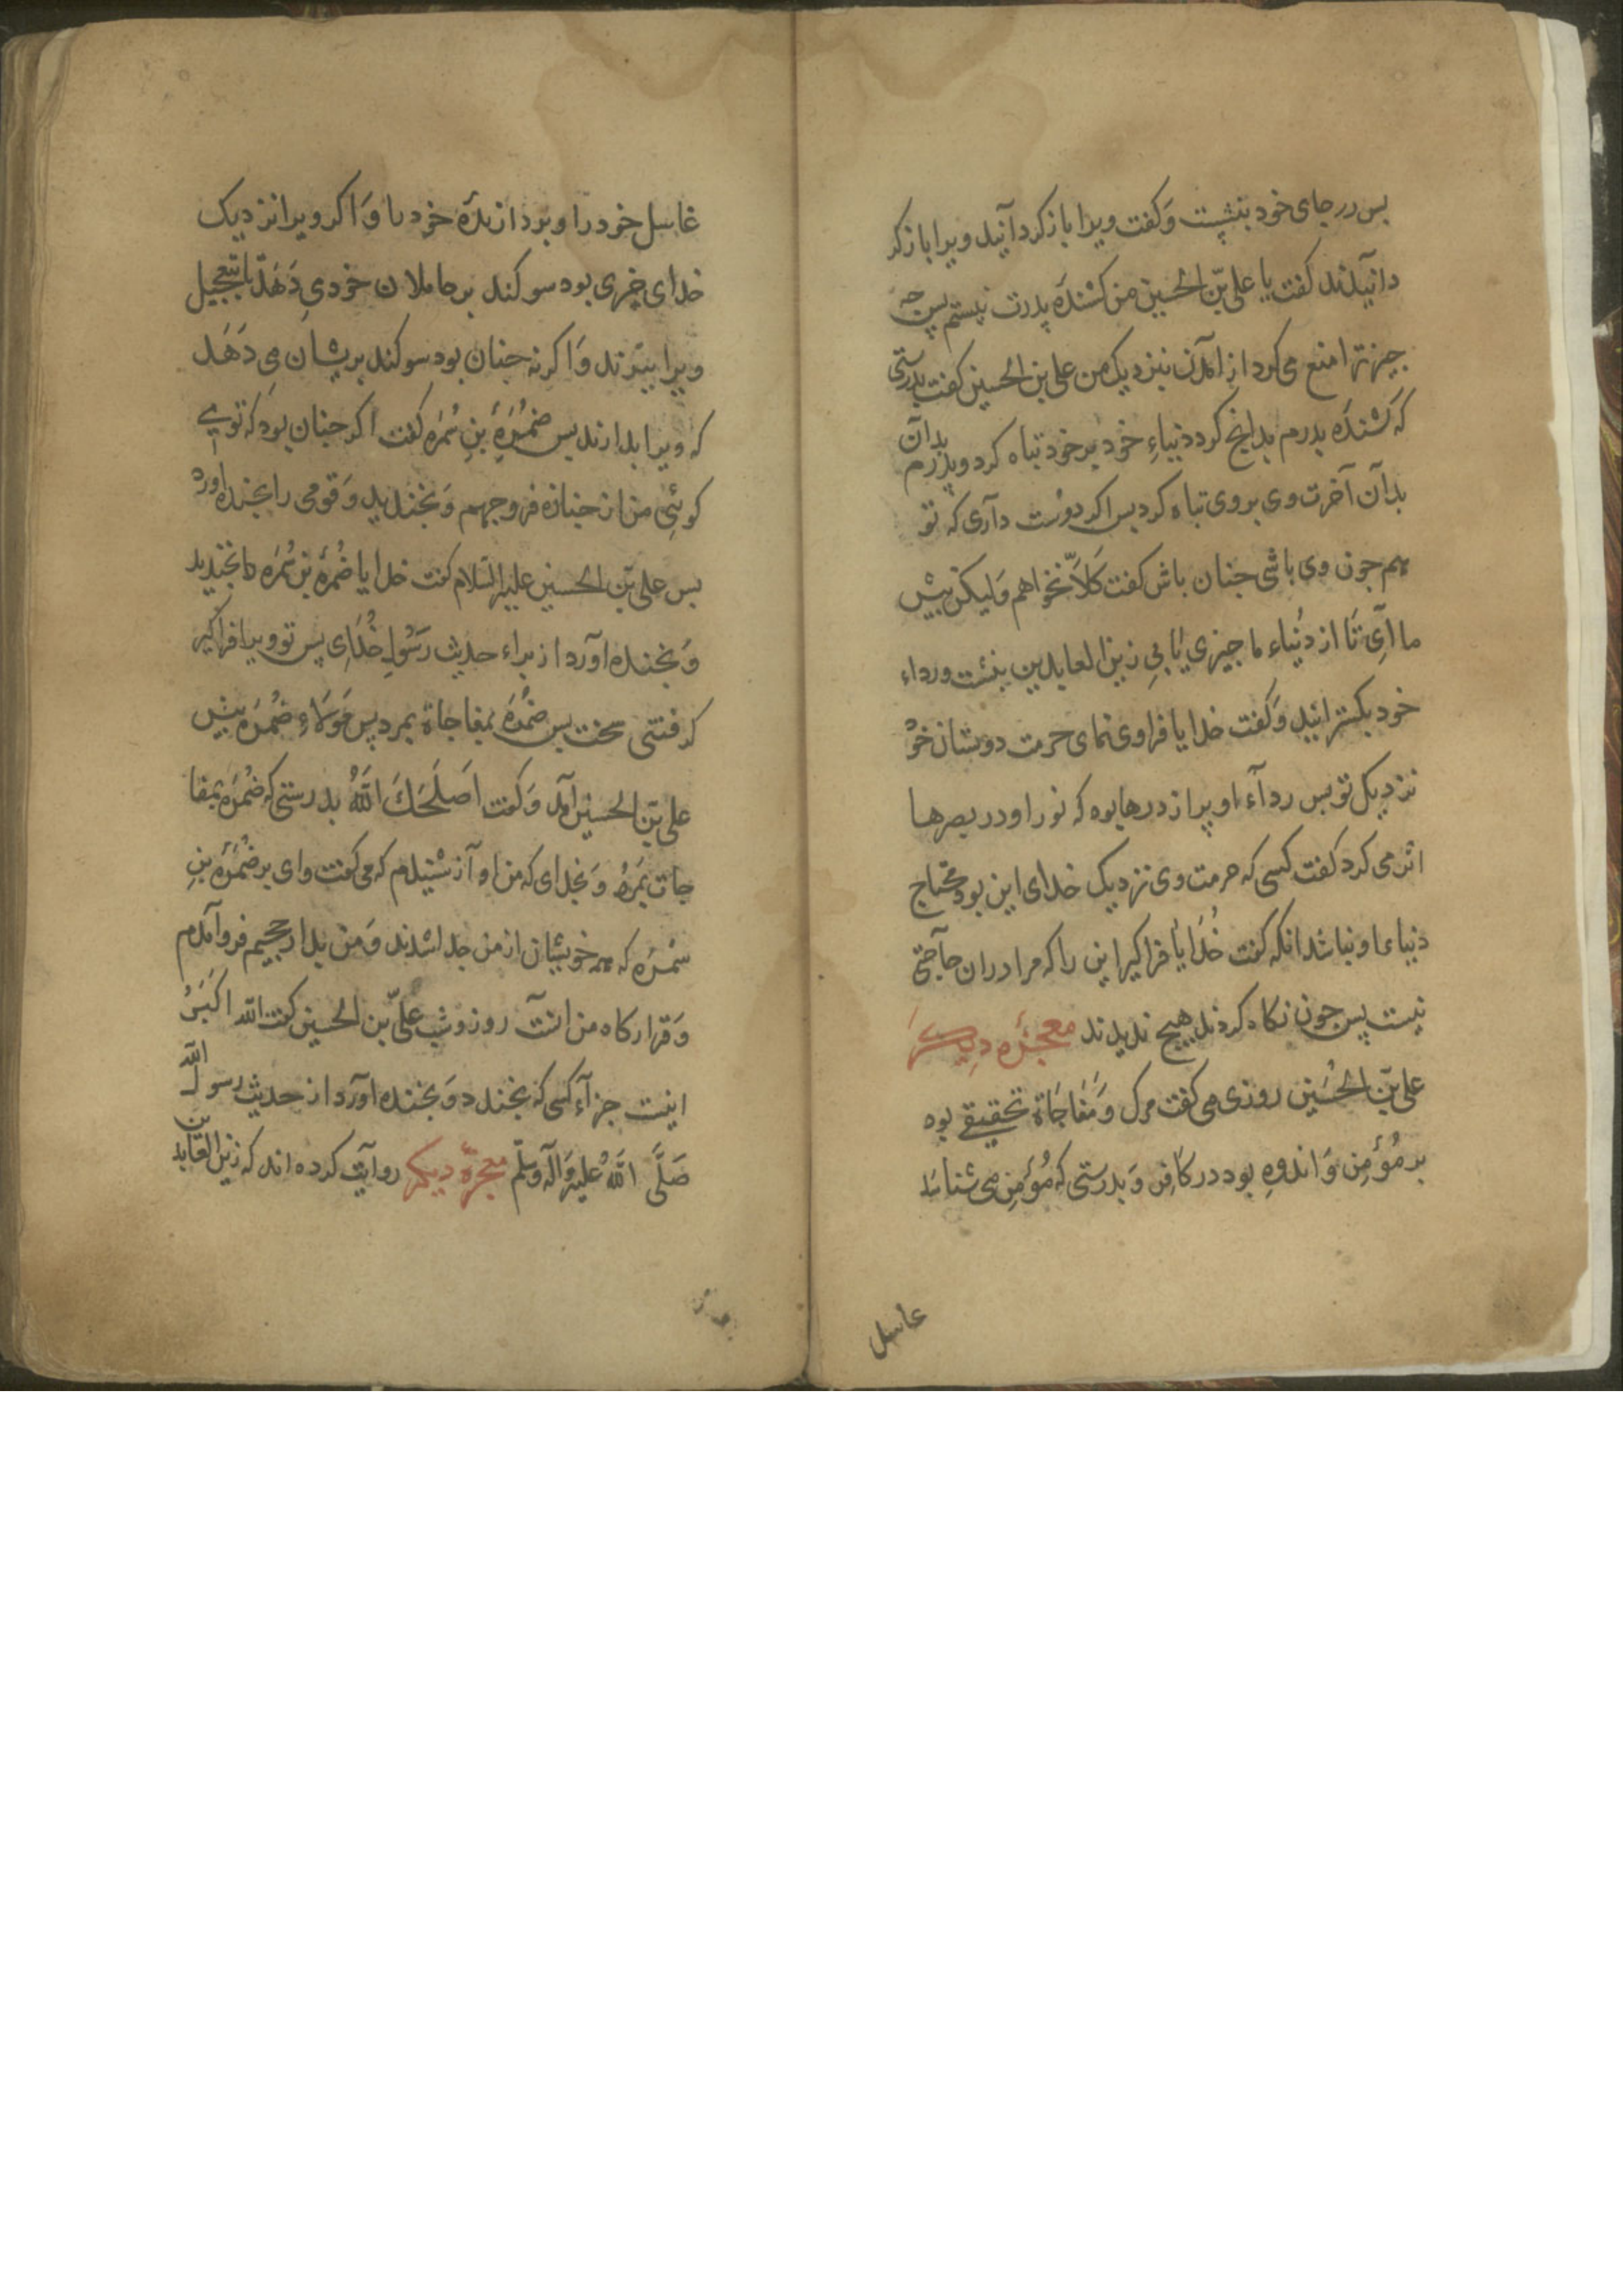 پس در جای خود بنشست وَ کفت ویرا باز کردانید ویرا باز کر
دانیدند کفت یا علی بّن الحسین من کشندَه پدرت نیستم پس چه
چیز ترا منع می کرد از امدن بنزدیک من علی بن الحسین کفت بدرستی
که کشندَه پدرم بدانچ کرد دنیاءِ خود بر خود تباه کرد و پدرم بدان
بدان آخرت وی بر وی تباه کرد پس اکر دوست داری که تو
هم چون وی باشی چنان باش کفت کَلّا نخواهم وَلیکن پیش
ما آیِ تا از دُنیاء ما چیزی یابی زین العابدین بنشست ورداء
خود بکسترانید وَ کفت خدایا فرا وی نمای حرمت دوستان خوْ
نزدیک تو پس رداء او پر از درها بوه که نور او در بصرها
اثر می کرد کفت کسی که حرمت وی نزدیک خدای این بود محتاج
دنیاء او نباشد انکه کفت خُدَایا فرا کیر این را که مرا در ان حاجتی
نیست پس چون نکاه کردند هیچ ندیدند معجزَه دِیکَر
علی بّن الحُسَین روزی می کفت مرک وَ مُفَاجَاة تخفیفی بوه
بر مُؤمِن وَ اندوهِ بود در کافِر وَ بدرستی که مُؤمِن می شناسَد
غاسل
غاسل خود را و بردارندَه خود را وَ اکر ویرا نزدیک
خدای خیری بود سوکند بر حاملان خود میِ دَهَد تا بتعجیل
ویرا ببرند وَ اکر نه چنان بود سوکند بریشان میِ دَهَد
که ویرا بدارند پس ضمُرَه بنِ سُمَره کفت اکر چنان بود که تومی
کوئی من از جنازه فرو جهم وَ بخندید وَ قومی را بخنده اورد
پس علی بّن الحسین علیه السّلام کفت خدایا ضُمرَه بن سُمَره بخندید
وَ بخنده اورد از براء حدیث رَسُولِ خُدَای پس تو ویرا فرا کیر
کرفتنی سخت پس ضمُرَه بمفاجاة بمرد پس مَولاءِ ضُمرَه پیش
علی بّن الحسین آمد وَ کفت اَصلَحَكَ اللّهُ بدرستی که ضُمرَه بمفا
جات بمَرد وَ بخدای که من اواز شنیدم که می کفت وای بر ضُمرَه بنِ
سُمَرَه که هر خویشان از من جدا شدند وَ من بدار جحیم فرو آمدم
وَ قرارکاه من انست روز و شب علیّ بن الحسین کفت اللّه اکبَرُ
اینست جزاء کسی که بخندد وَ بخنده اورد از حدیث رسول اللّه
صَلَّی اللّهُ علیه وَ آله وسلّم معجزَه دیکر روایت کرده اند که زین العابدین